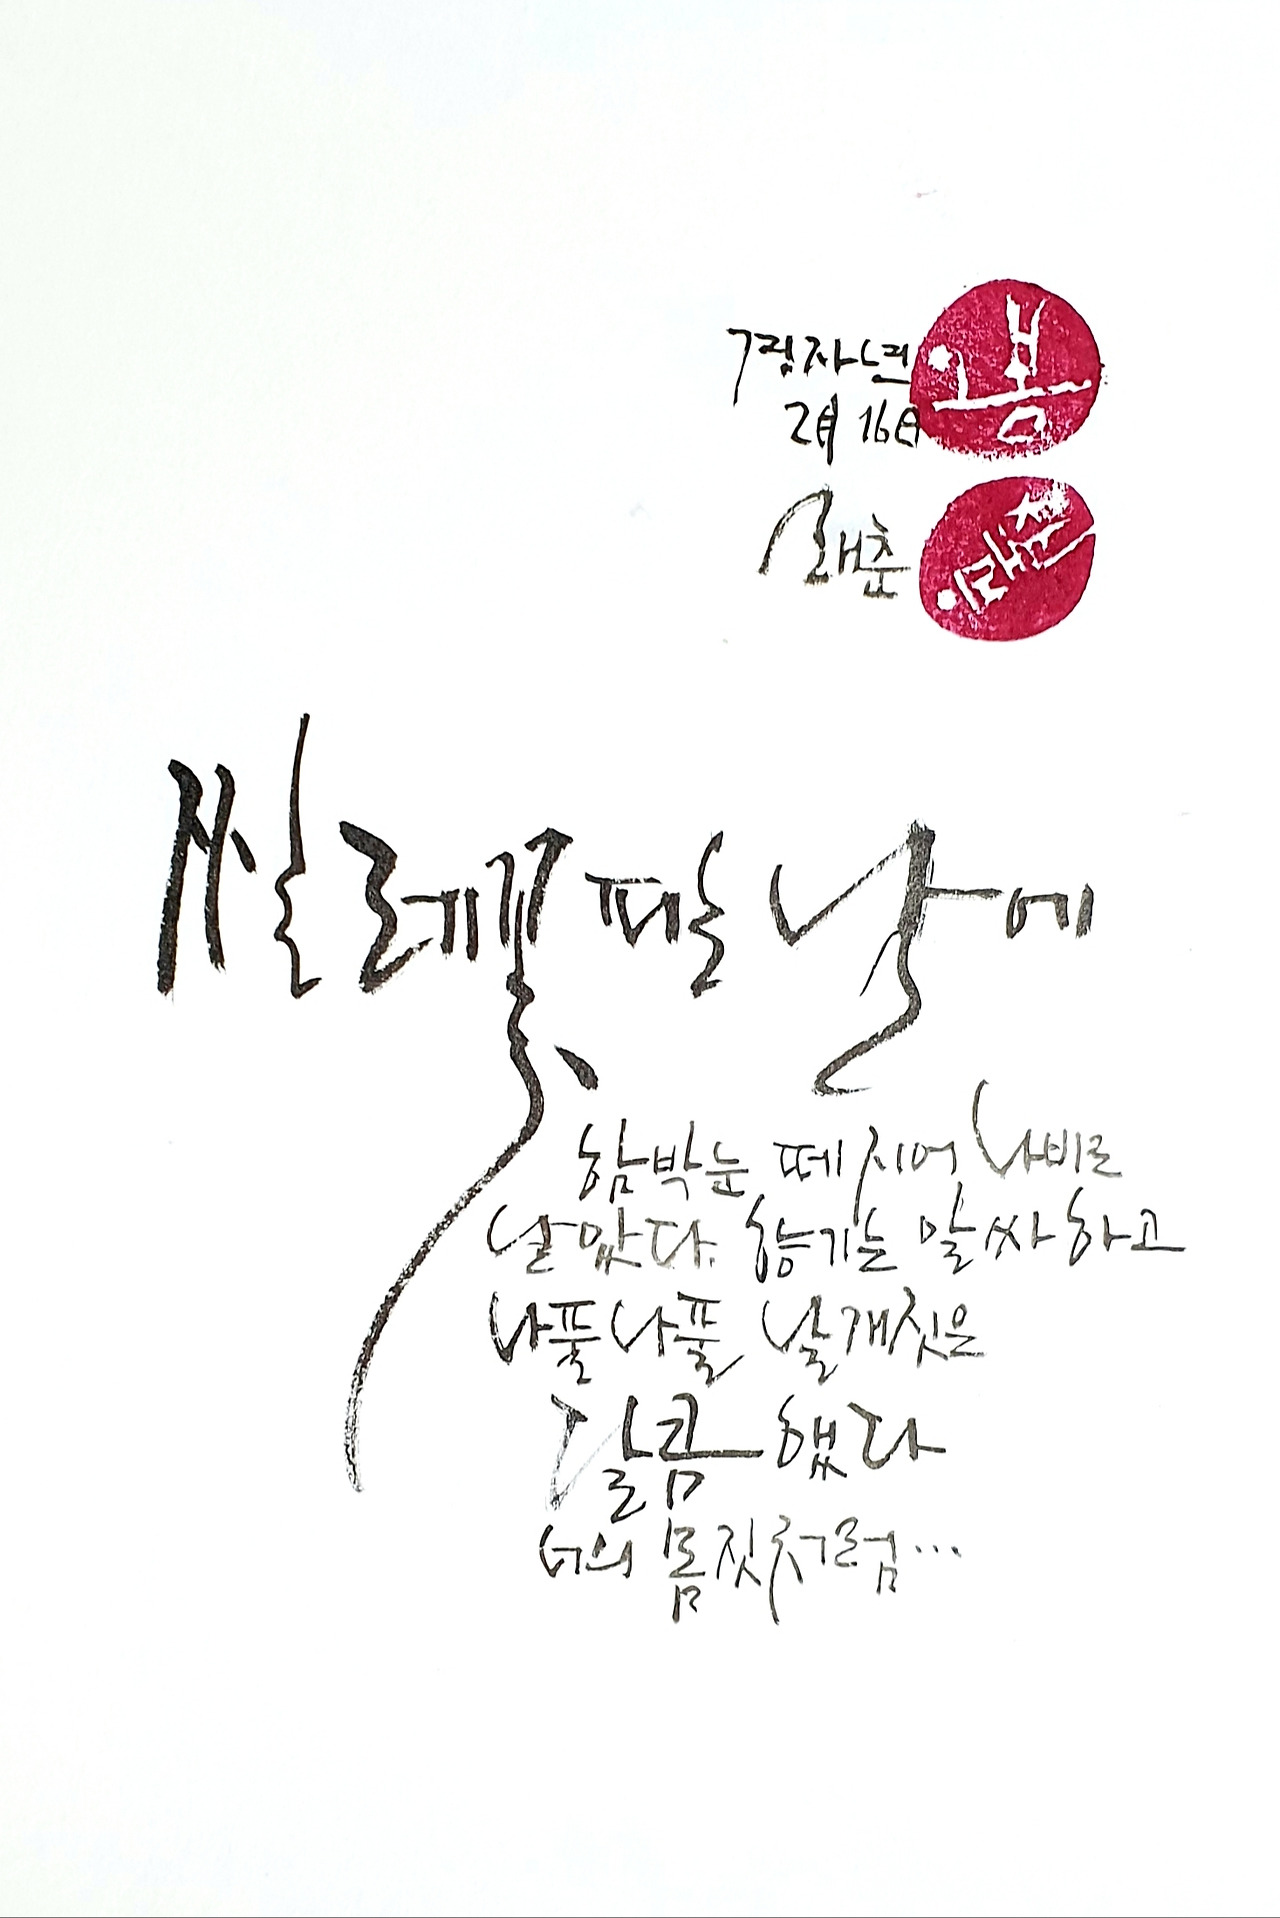 경자년
2月 16日
래춘
봄
래춘
씰레꽃 피는 날에
함박눈 떼지어 나비로
날았다. 향기는 알싸하고
나풀나풀 날개짓은
달콤했다
너의 몸짓처럼…